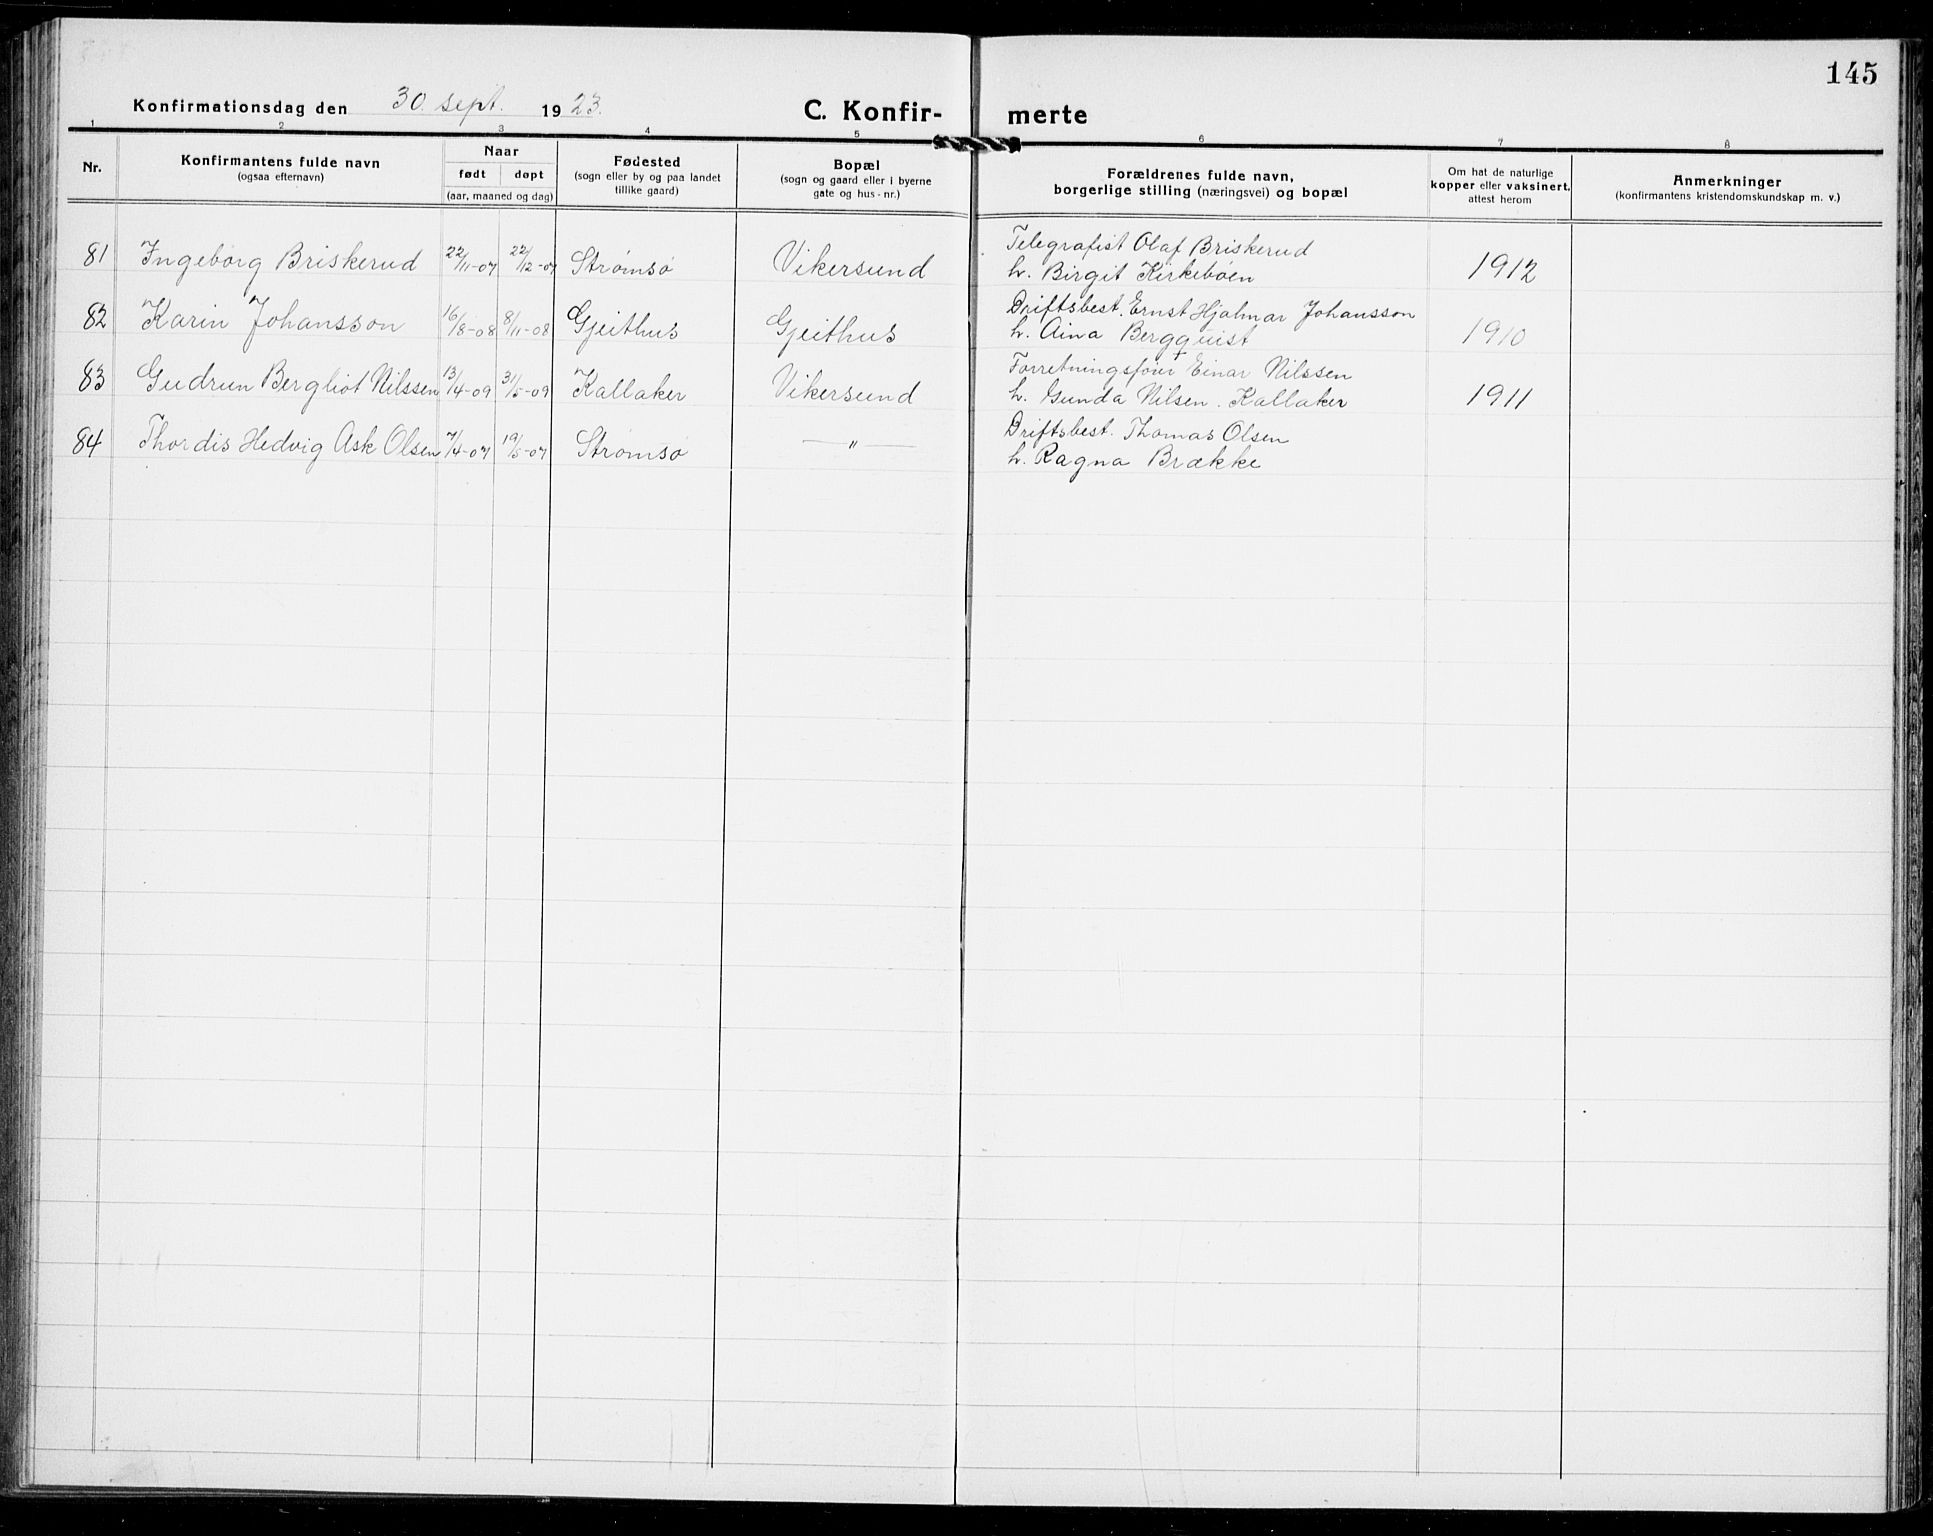 145
Konfirmationsdag den 30. sept. 1923.
C. Konfir- merte
1 2 3 4 5 6 7 8
Nr.
Konfirmantens fulde navn
(ogsaa efternavn)
Naar
født døpt
(aar, maaned og dag)
Fødested
(sogn eller by og paa landet
tillike gaard)
Bopæl
(sogn og gaard eller i byerne
gate og hus-nr.)
Forældrenes fulde navn,
borgerlige stilling (næringsvei) og bopæl
Om hat de naturlige
kopper eller vaksinert,
attest herom
Anmerkninger
(konfirmantens kristendomskundskap m. v.)
81 Ingeborg Briskerud 22/11-07 22/12-07 Strømsø Vikersund Telegrafist Olaf Briskerud
h. Birgit Kirkebøen 1912
82 Karin Johansson 16/8-08 8/11-08 Gjeithus Gjeithus Driftsbest. Ernst Hjalmar Johansson
h. Aina Bergquist 1910
83 Gudrun Bergliot Nilssen 13/4-09 31/5-09 Kallaker Vikersund Forretningsfører Einar Nilssen
h. Gunda Nilsen. Kallaker 1911
84 Thordis Hedvig Ask Olsen 7/4-07 19/5-07 Strømsø — " — Driftsbest. Thomas Olsen
h. Ragna Brække